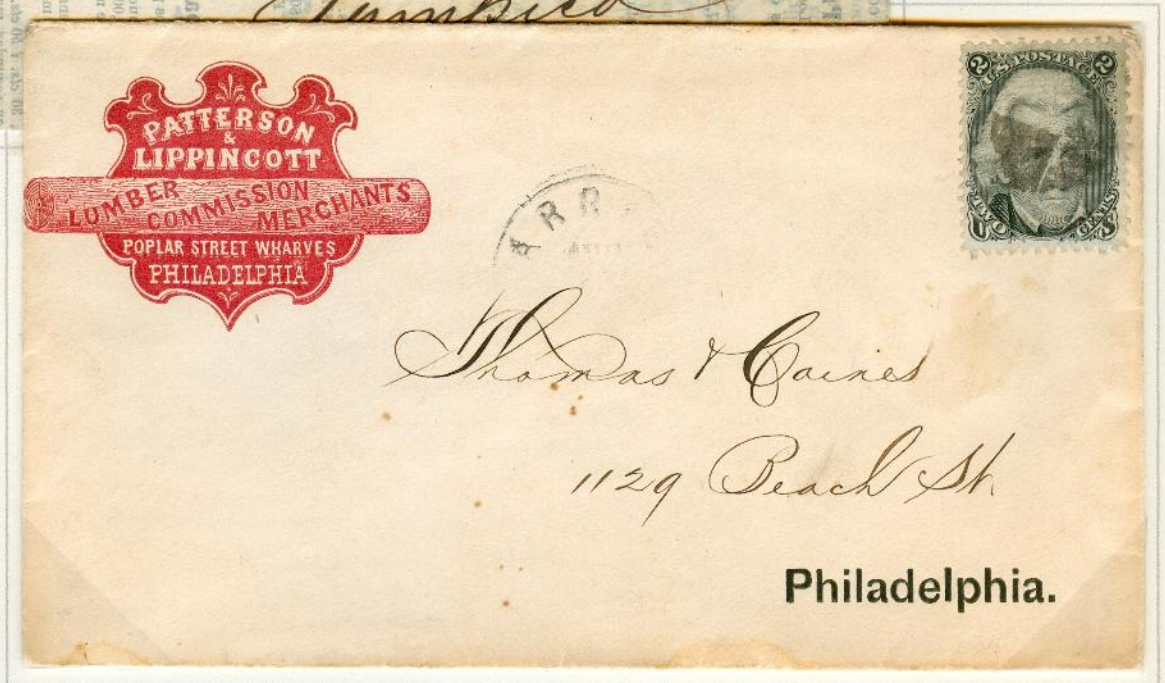 Tampico
PATTERSON
&
LIPPINCOTT
LUMBER COMMISSION MERCHANTS
POPLAR STREET WHARVES
PHILADELPHIA
2 U.S. POSTAGE 2
U TWO CENTS S
Thomas & Caines
1129 Beach St.
Philadelphia.